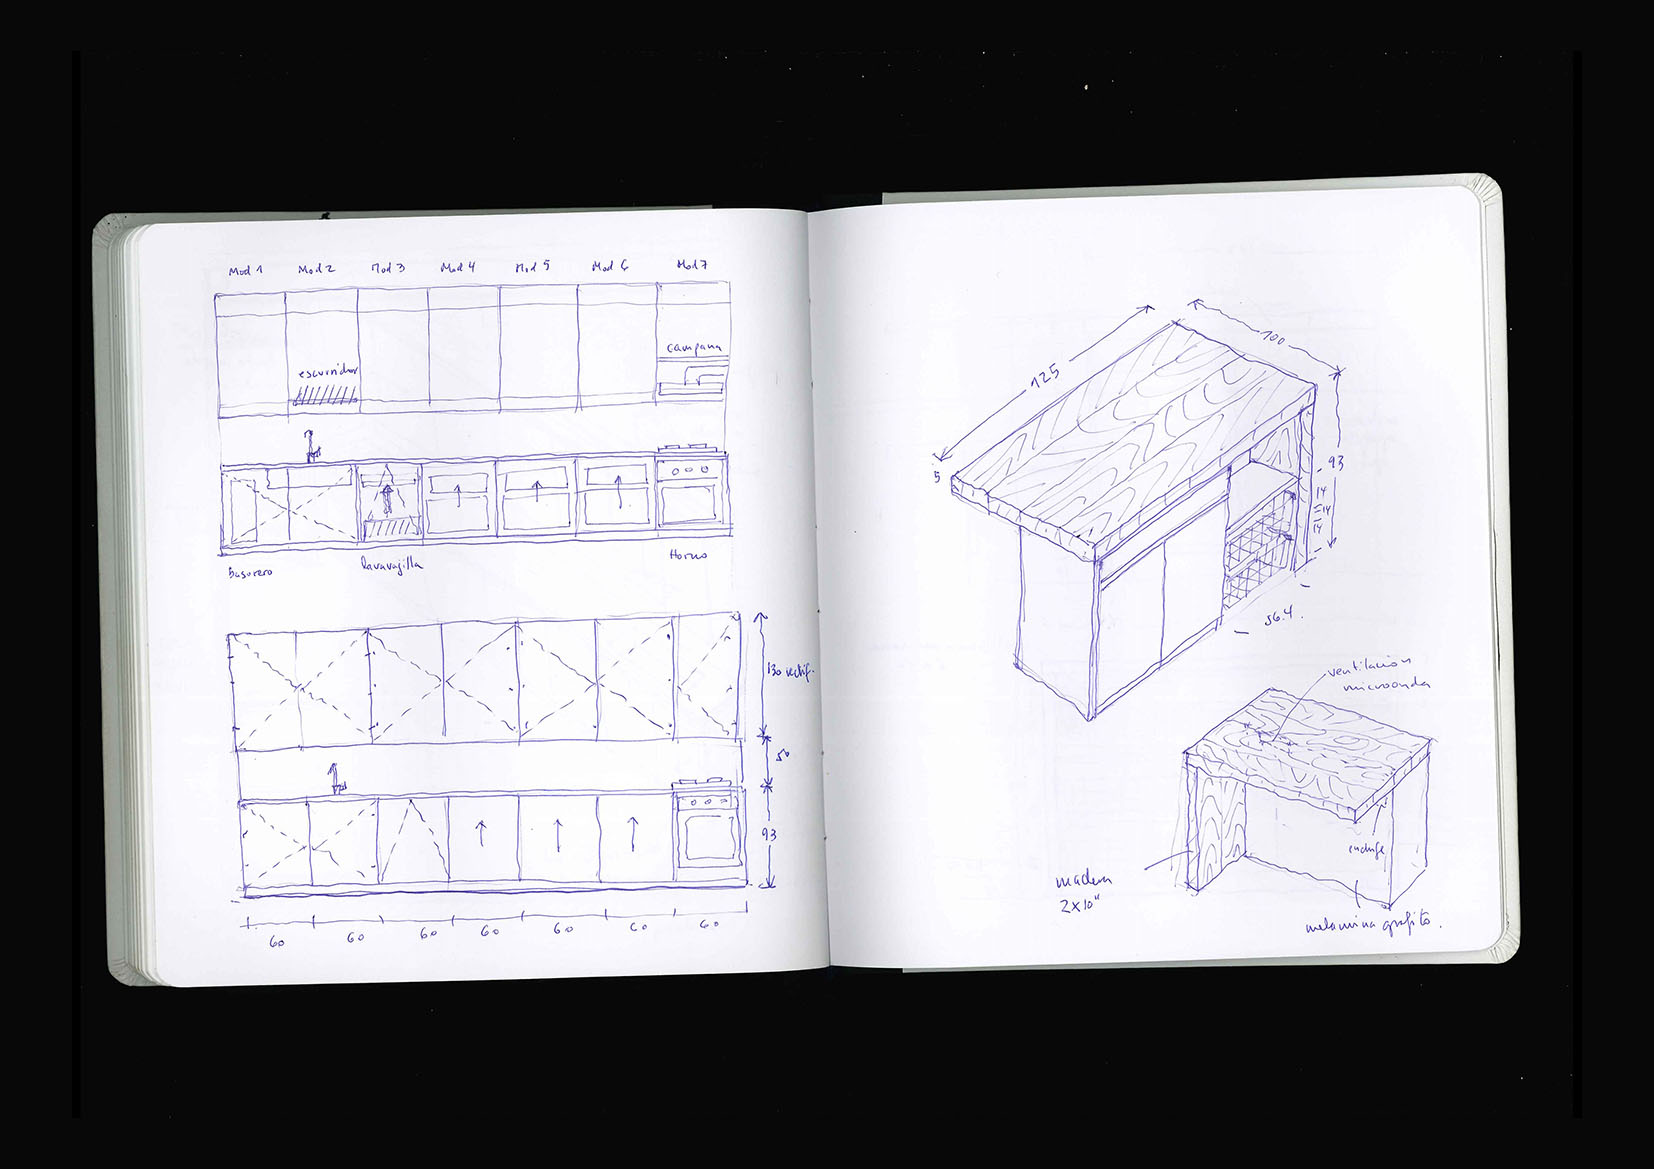 Mod 1 Mod 2 Mod 3 Mod 4 Mod 5 Mod 6 Mod 7
campana
escurridor
Basurero
lavavajilla
Horno
130 rectif.
50
93
60 60 60 60 60 60 60
125
100
5
93
14
14
14
56.4.
ventilacion
microonda
enchufe
madera
2x10"
melamina grafito.